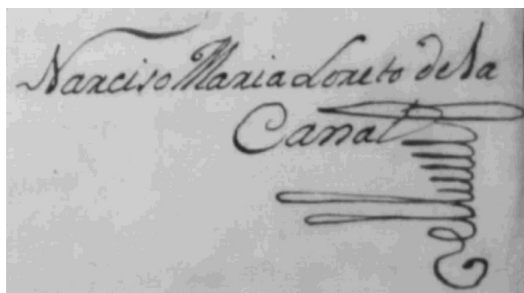 Narciso Maria Loreto de la
Canal